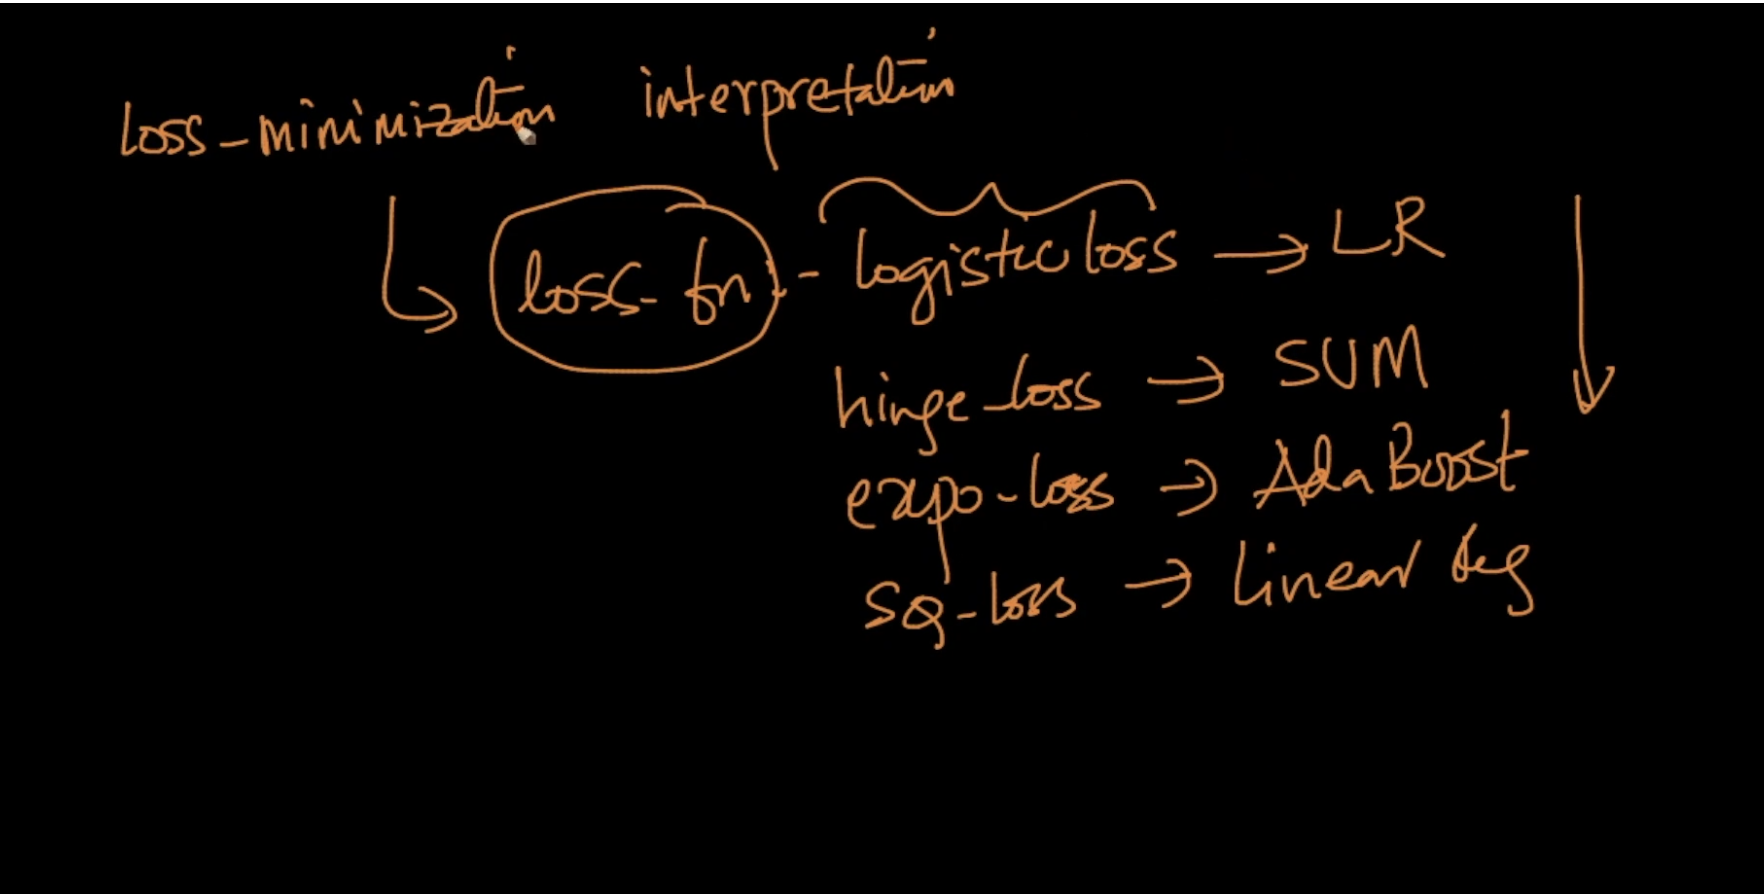 Loss-minimization interpretation
loss-fn:- logistic loss → LR
hinge-loss → SVM
expo-loss → AdaBoost
SQ-loss → Linear Reg